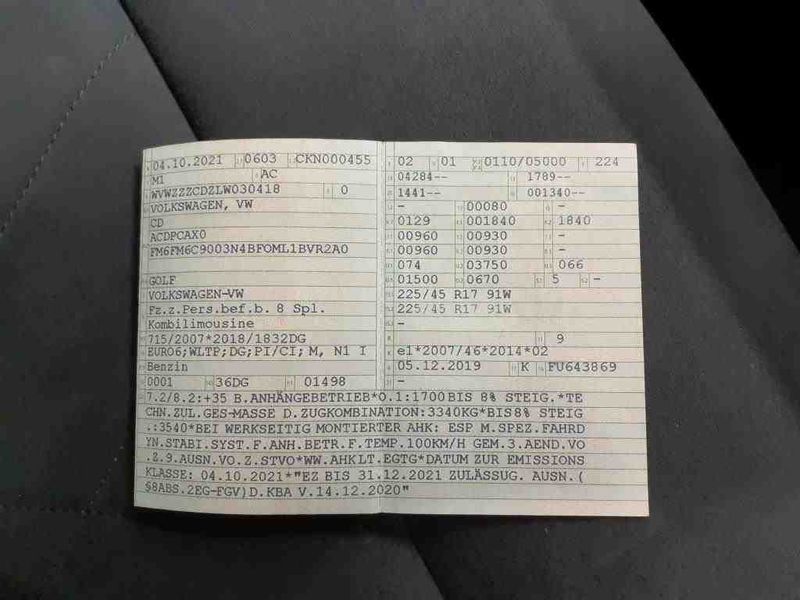 04.10.2021 0603 CKN000455
M1 AC
WVWZZZCDZLW030418 0
VOLKSWAGEN, VW
CD
ACDPCAX0
FM6FM6C9003N4BFOML1BVR2A0
GOLF
VOLKSWAGEN-VW
Fz.z.Pers.bef.b. 8 Spl.
Kombilimousine
715/2007*2018/1832DG
EURO6;WLTP;DG;PI/CI; M, N1 I
Benzin
0001 36DG 01498
02 01 0110/05000 224
04284-- 1789--
1441-- 001340--
- 00080 -
0129 001840 1840
00960 00930 -
00960 00930 -
074 03750 066
01500 0670 5 -
225/45 R17 91W
225/45 R17 91W
-
- 9
e1*2007/46*2014*02
05.12.2019 K FU643869
-
7.2/8.2:+35 B.ANHÄNGEBETRIEB*O.1:1700BIS 8% STEIG.*TE
CHN.ZUL.GES-MASSE D.ZUGKOMBINATION:3340KG*BIS8% STEIG
.:3540*BEI WERKSEITIG MONTIERTER AHK: ESP M.SPEZ.FAHRD
YN.STABI.SYST.F.ANH.BETR.F.TEMP.100KM/H GEM.3.AEND.VO
.Z.9.AUSN.VO.Z.STVO*WW.AHKLT.EGTG*DATUM ZUR EMISSIONS
KLASSE: 04.10.2021*"EZ BIS 31.12.2021 ZULÄSSUG. AUSN.(
§8ABS.2EG-FGV)D.KBA V.14.12.2020"